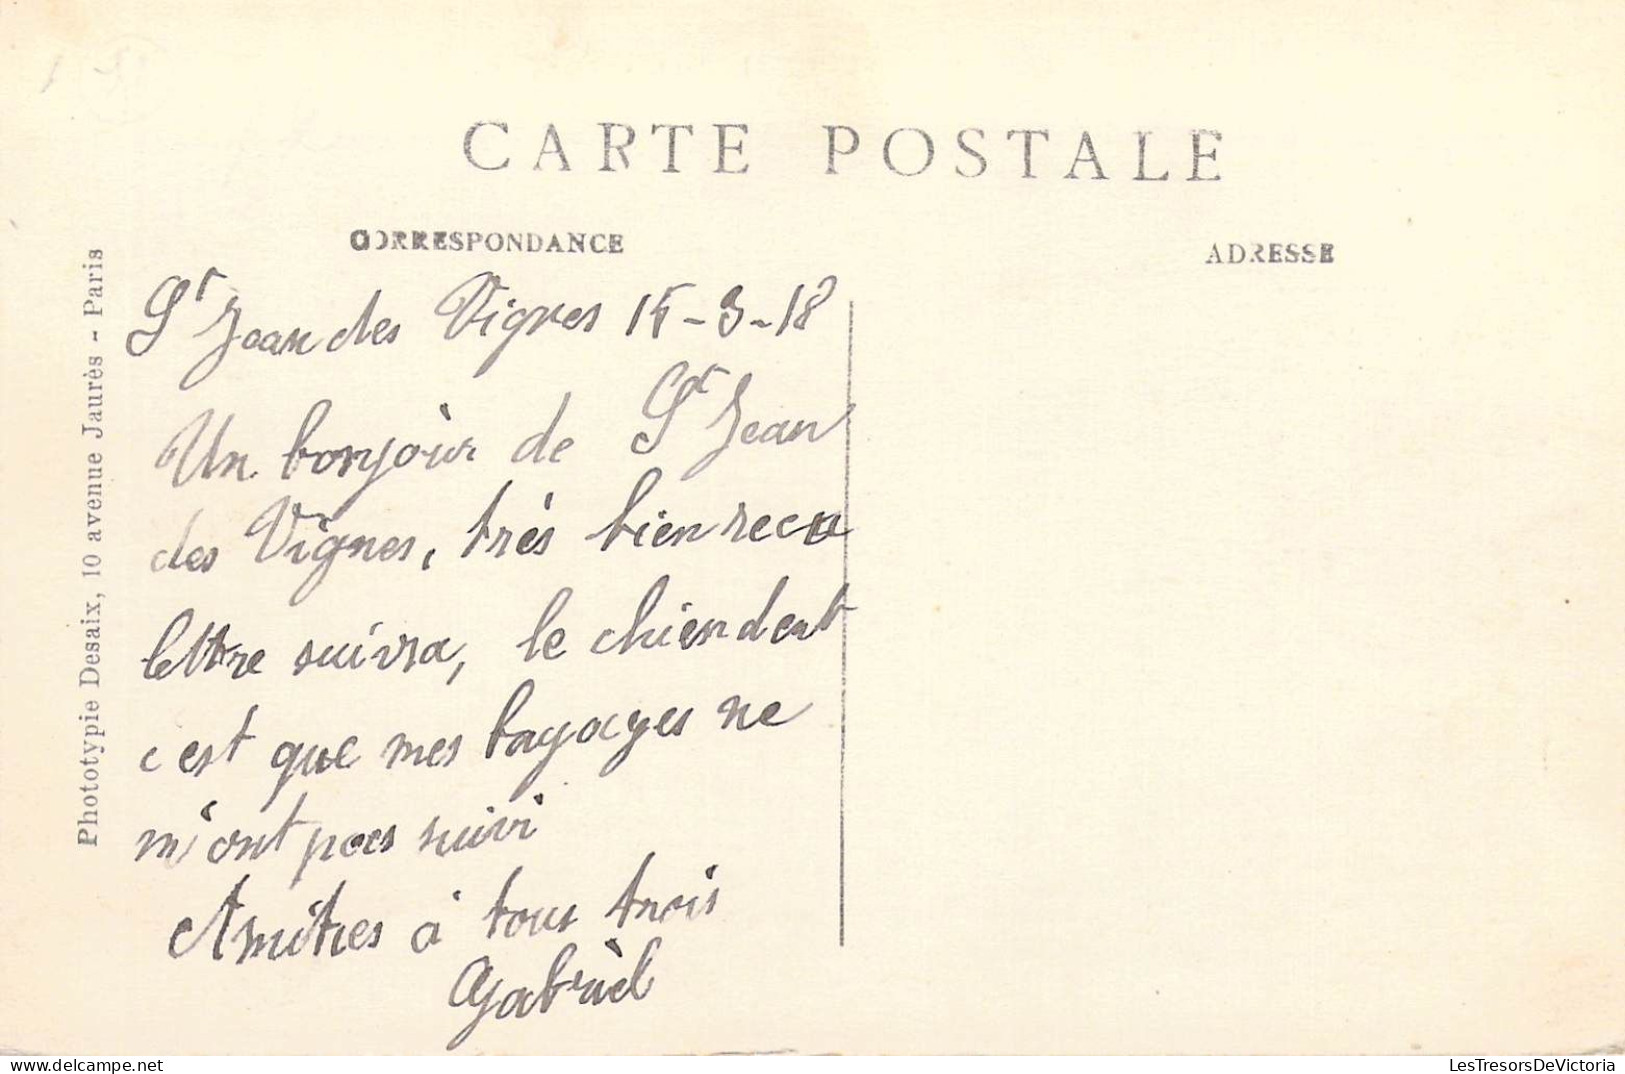 CARTE POSTALE
CORRESPONDANCE
ADRESSE
Phototypie Desaix, 10 avenue Jaurès - Paris
St Jean des Vignes 15-3-18
Un bonjour de St Jean
des Vignes, très bien recu
lettre suivra, le chiendent
c'est que mes bagages ne
m'ont pas suivi
Amitiés à tous trois
Gabriel
LesTresorsDeVictoria